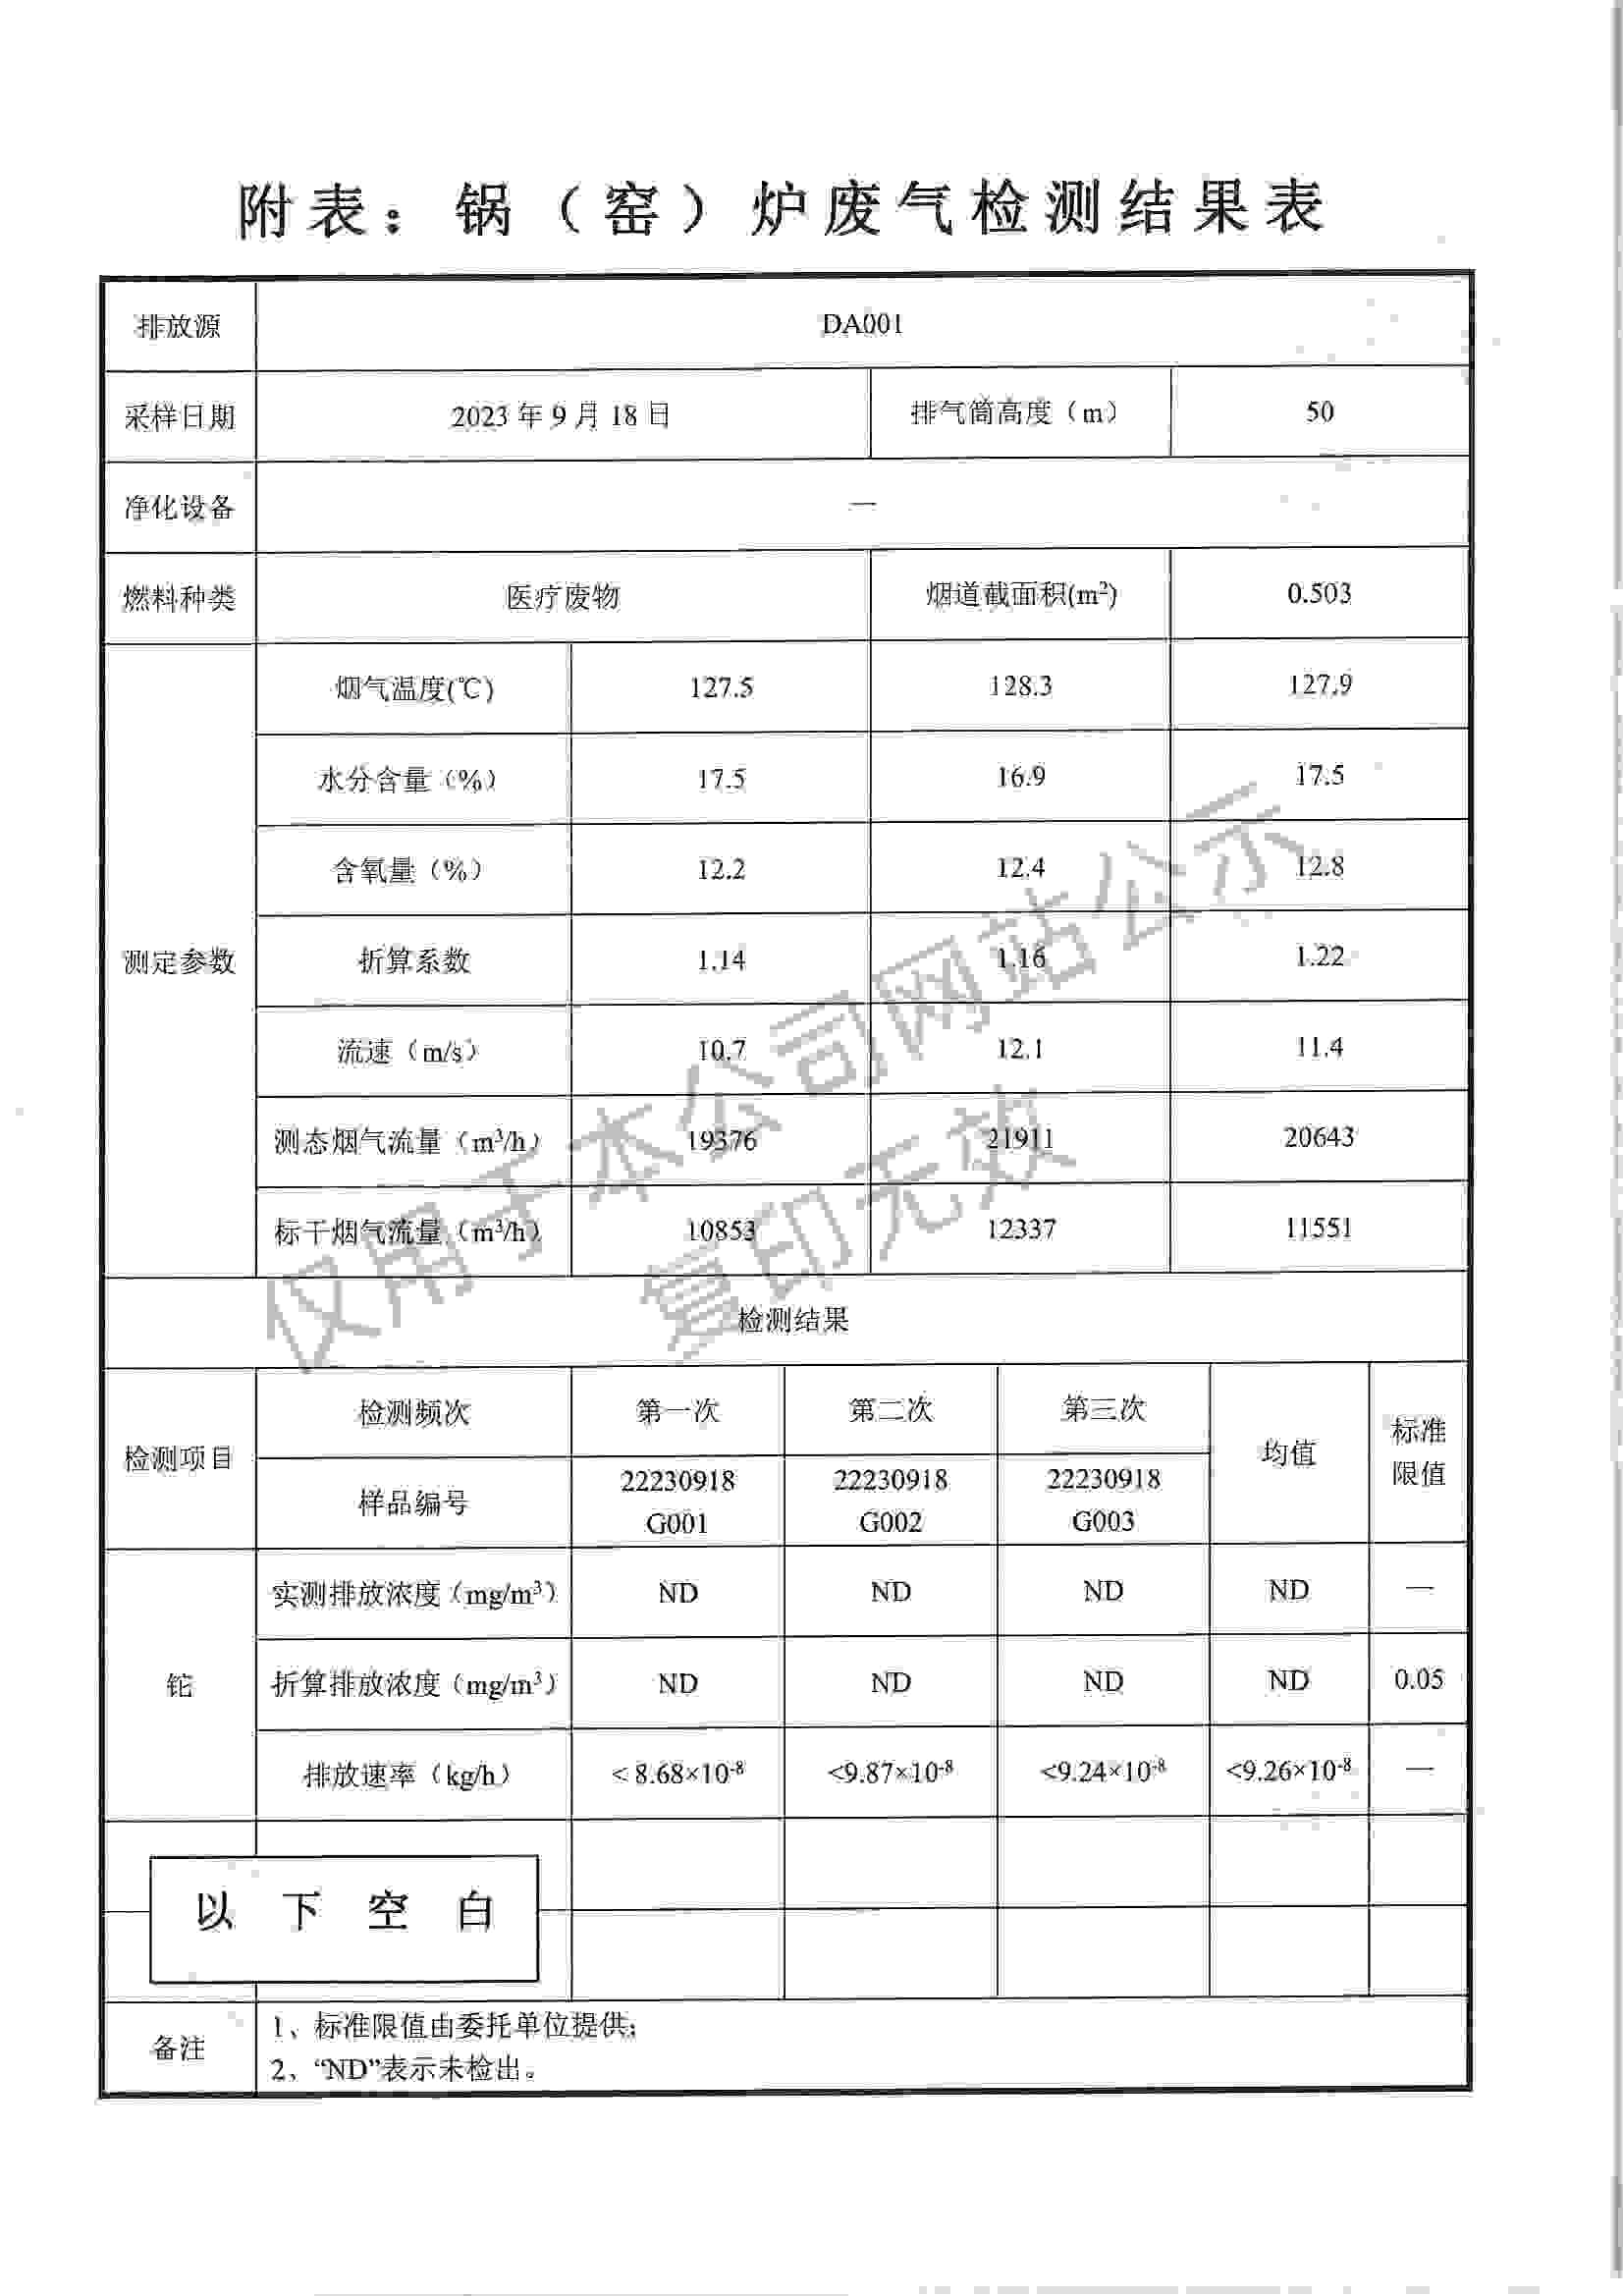 附表：锅（窑）炉废气检测结果表
排放源 DA001
采样日期 2023年9月18日 排气筒高度（m） 50
净化设备 —
燃料种类 医疗废物 烟道截面积(m²) 0.503
测定参数
烟气温度(℃) 127.5 128.3 127.9
水分含量（%） 17.5 16.9 17.5
含氧量（%） 12.2 12.4 12.8
折算系数 1.14 1.16 1.22
流速（m/s） 10.7 12.1 11.4
测态烟气流量（m³/h） 19376 21911 20643
标干烟气流量（m³/h） 10853 12337 11551
检测结果
检测项目 检测频次 第一次 第二次 第三次 均值 标准限值
样品编号 22230918G001 22230918G002 22230918G003
铊
实测排放浓度（mg/m³） ND ND ND ND —
折算排放浓度（mg/m³） ND ND ND ND 0.05
排放速率（kg/h） <8.68×10⁻⁸ <9.87×10⁻⁸ <9.24×10⁻⁸ <9.26×10⁻⁸ —
以下空白
备注
1、标准限值由委托单位提供；
2、“ND”表示未检出。
仅用于本公司网站公示
复印无效